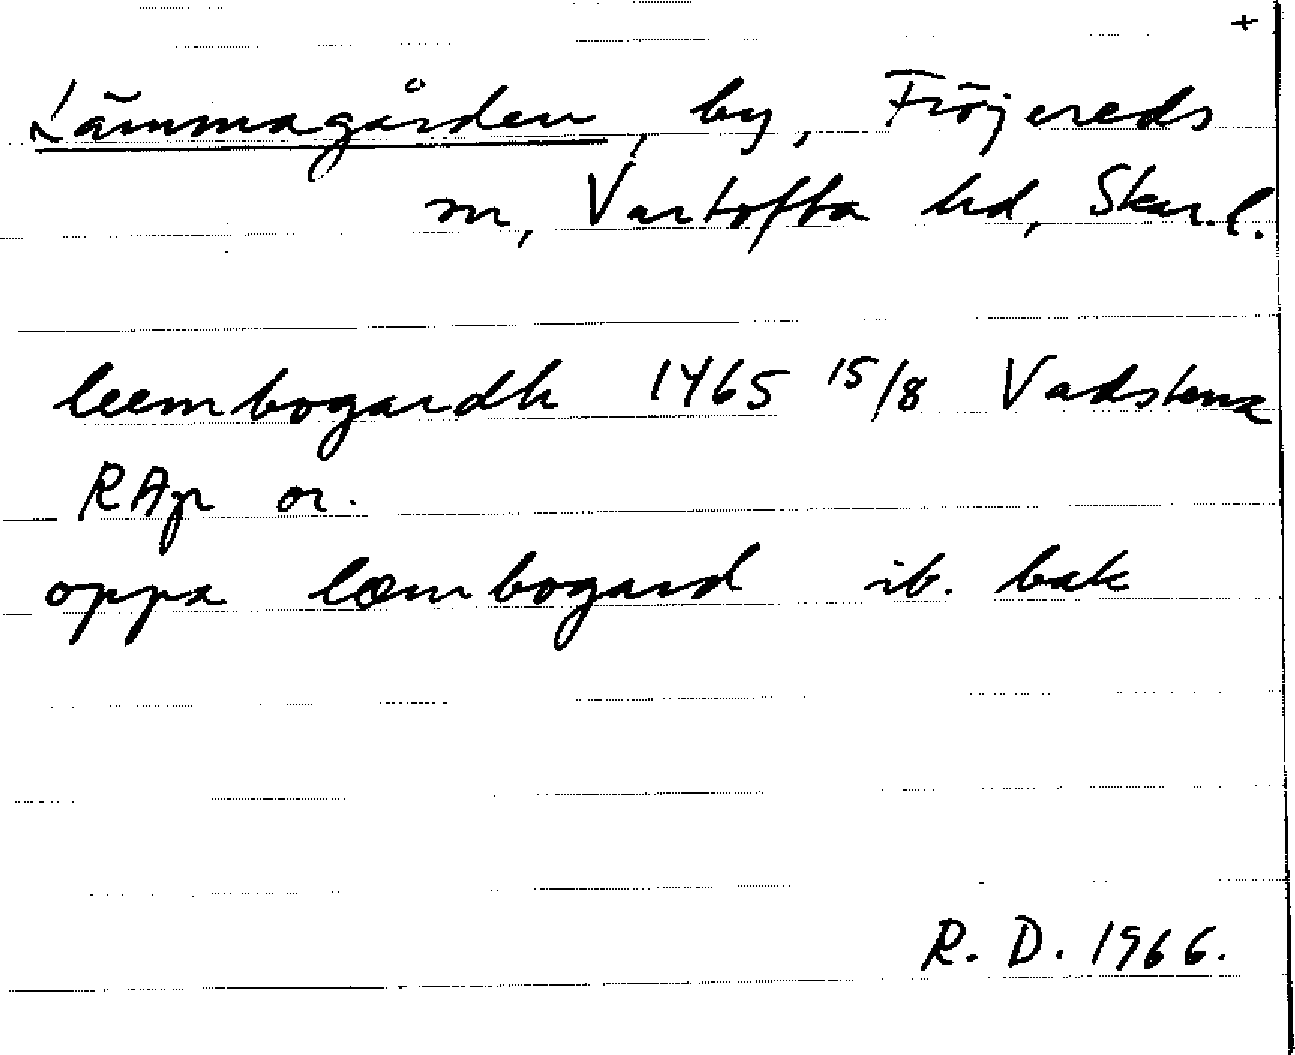 +
Lämmagården, by, Fröjereds
sn, Vartofta hd, Skar.l.
leembogardh 1465 15/8 Vadstena
RAp or.
oppa læmbogard ib. bak
R. D. 1966.